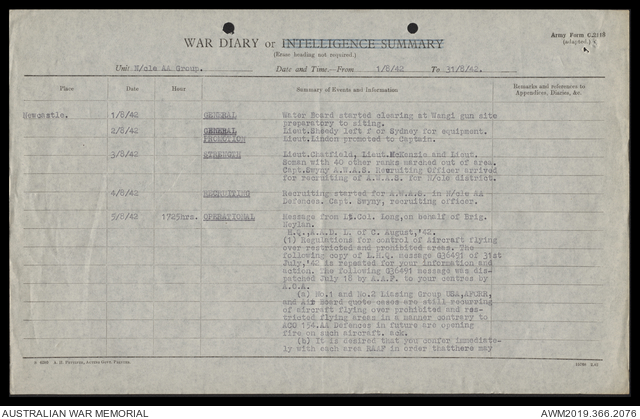 WAR DIARY or INTELLIGENCE SUMMARY
Army Form C.2118
(adapted.)
(Erase heading not required.)
Unit N/cle AA Group. Date and Time—From 1/8/42 To 31/8/42.
Place Date Hour Summary of Events and Information Remarks and references to Appendices, Diaries, &c.
Newcastle. 1/8/42 GENERAL Water Board started clearing at Wangi gun site
preparatory to siting.
2/8/42 GENERAL Lieut. Sheedy left for Sydney for equipment.
PROMOTION Lieut. Lindon promoted to Captain.
3/8/42 STRENGTH Lieut. Chatfield, Lieut. McKenzie and Lieut.
Homan with 40 other ranks marched out of area.
Capt. Swyny A.W.A.S. Recruiting Officer arrived
for recruiting of A.W.A.S. for N/cle district.
4/8/42 RECRUITING Recruiting started for A.W.A.S. in N/cle AA
Defences. Capt. Swyny, recruiting officer.
5/8/42 1725hrs. OPERATIONAL Message from Lt.Col. Long, on behalf of Brig.
Heylan.
H.Q., A.A.D. L. of C. August, '42.
(1) Regulations for control of Aircraft flying
over restricted and prohibited areas. The
following copy of L.H.Q. message G36491 of 31st
July, '42 is repeated for your information and
action. The following G36491 message was dis-
patched July 18 by A.A.F. to your centres by
A.O.A.
(a) No.1 and No.2 Liasing Group USA, AFCRR,
and Air Board quote cases are still recurring
of aircraft flying over prohibited and res-
tricted flying areas in a manner contrary to
ACO 134. AA Defences in future are opening
fire on such aircraft. ack.
(b) It is desired that you confer immediate-
ly with each area RAAF in order that there may
AUSTRALIAN WAR MEMORIAL
AWM2019.366.2076